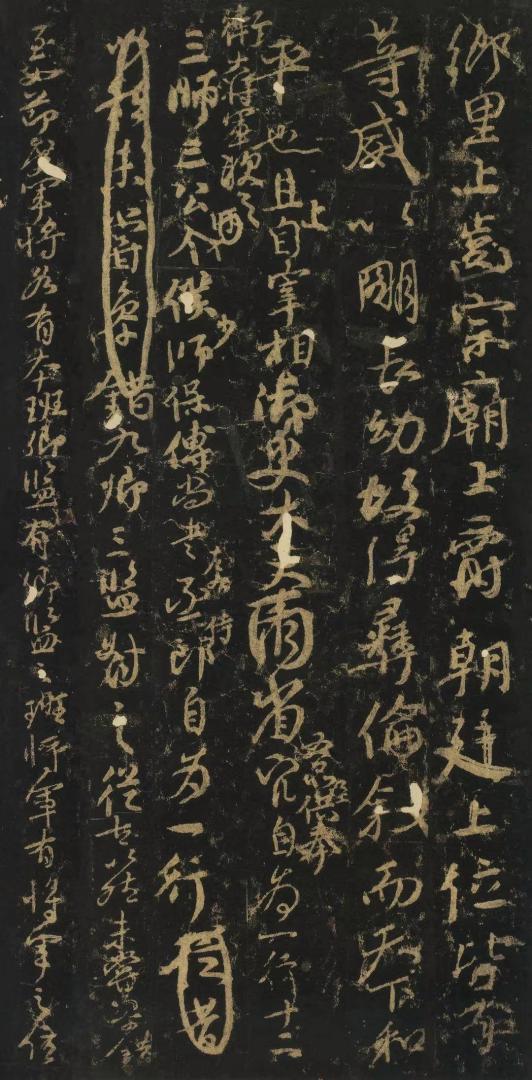 鄉里上齒宗廟上爵朝廷上位皆有
等威以明長幼故得彝倫叙而天下和
平也且上自宰相御史大夫兩省五品以上供奉官自為一行十二
衛大將軍次之三師三公令僕少師保傅尚書左右丞侍郎自為一行
錯九卿三監對之從古以然未嘗參錯
至如節度軍將各有本班卿監有卿監之班將軍有將軍之位